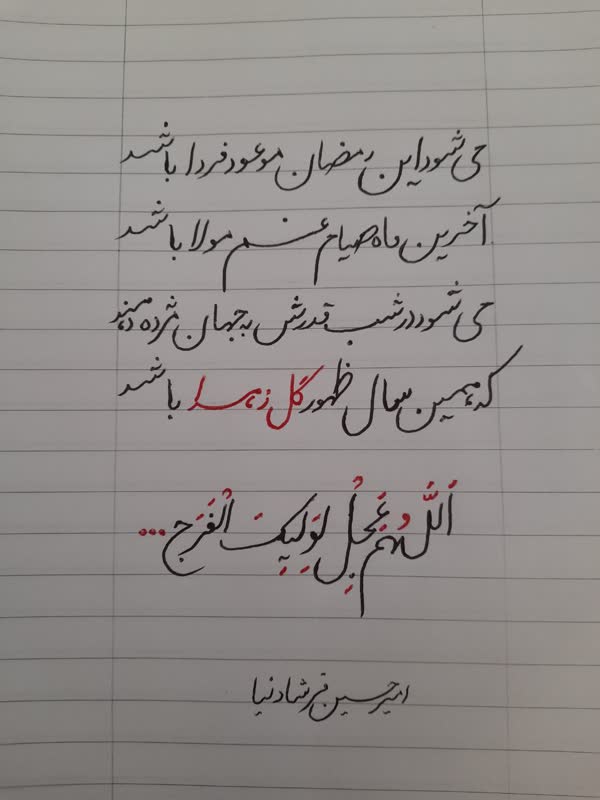 می شود این رمضان موعود فردا باشد
آخرین ماه صیام غم مولا باشد
می شود در شب قدرش به جهان مژده دهند
که همین سال ظهور گل زهرا باشد
اَللّهُمَ عَجِّلْ لِوَلِیِکَ الْفَرَج...
امیرحسین فرشادنیا